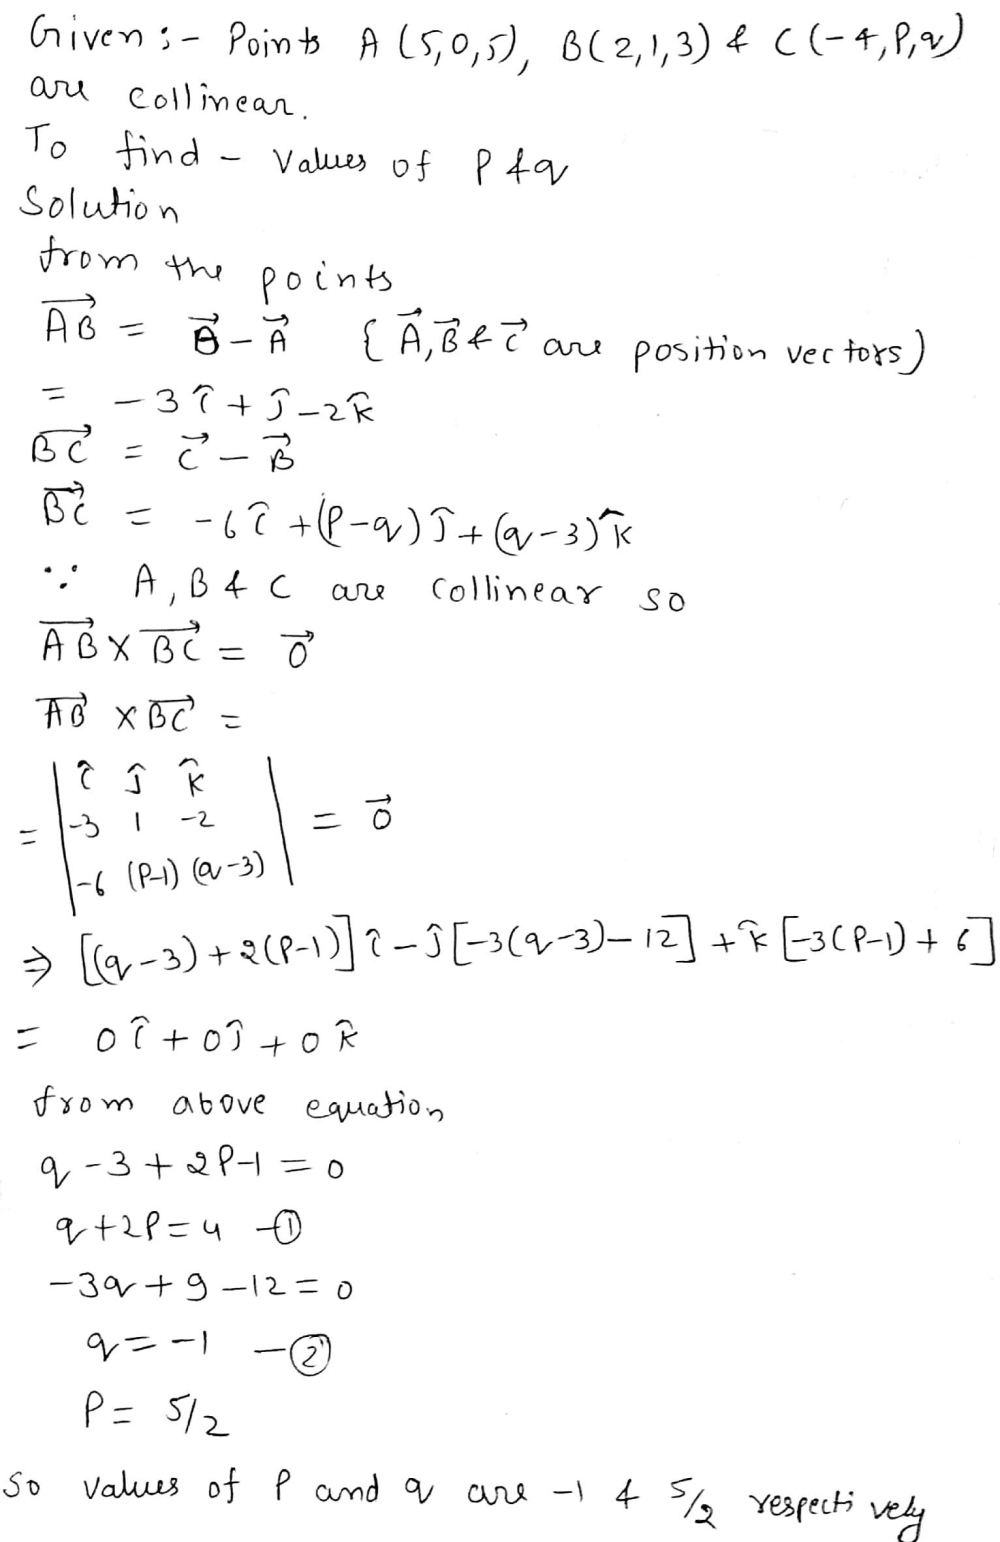 Given :- Points A (5,0,5), B(2,1,3) & C(-4,P,q)
are collinear.
To find - Values of P & q
Solution
from the points
→AB = →B - →A { →A, →B & →C are position vectors)
= -3î + ĵ - 2k̂
→BC = →C - →B
→BC = -6î + (P-q)ĵ + (q-3)k̂
∵ A, B & C are collinear so
→AB X →BC = →0
→AB X →BC =
= | î ĵ k̂ |
| -3 1 -2 | = →0
| -6 (P-1) (q-3) |
⇒ [(q-3)+2(P-1)]î - ĵ[-3(q-3)-12] + k̂[-3(P-1)+6]
= 0î + 0ĵ + 0k̂
from above equation
q - 3 + 2P-1 = 0
q + 2P = 4 -①
-3q + 9 - 12 = 0
q = -1 -②
P = 5/2
So values of P and q are -1 & 5/2 respectively